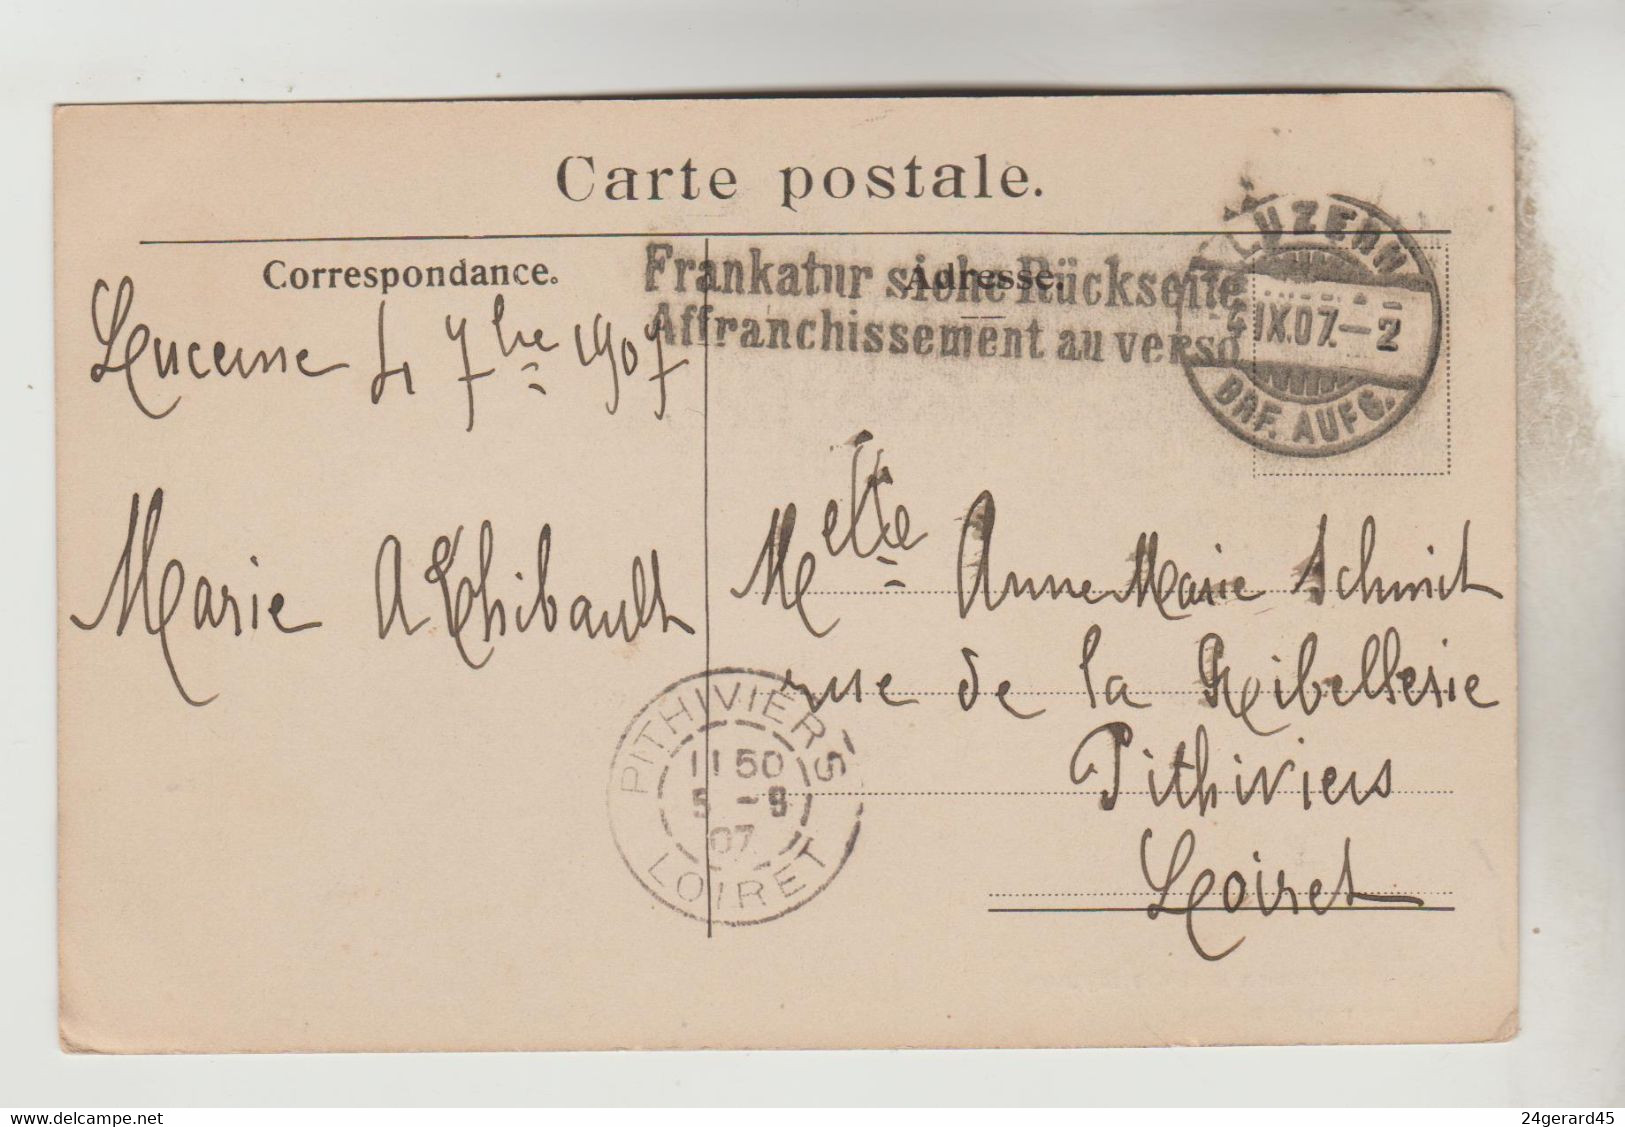 Carte postale.
Correspondance.
Adresse.
Frankatur siehe Rückseite
Affranchissement au verso
LUZERN
4 IX.07.–2
BRF. AUFG.
Lucerne 4 7bre 1907
Marie A Thibault
Melle Anne Marie Schmit
rue de la Ribellerie
Pithiviers
Loiret
PITHIVIERS
11 50
5 -9
07
LOIRET
www.delcampe.net
24gerard45